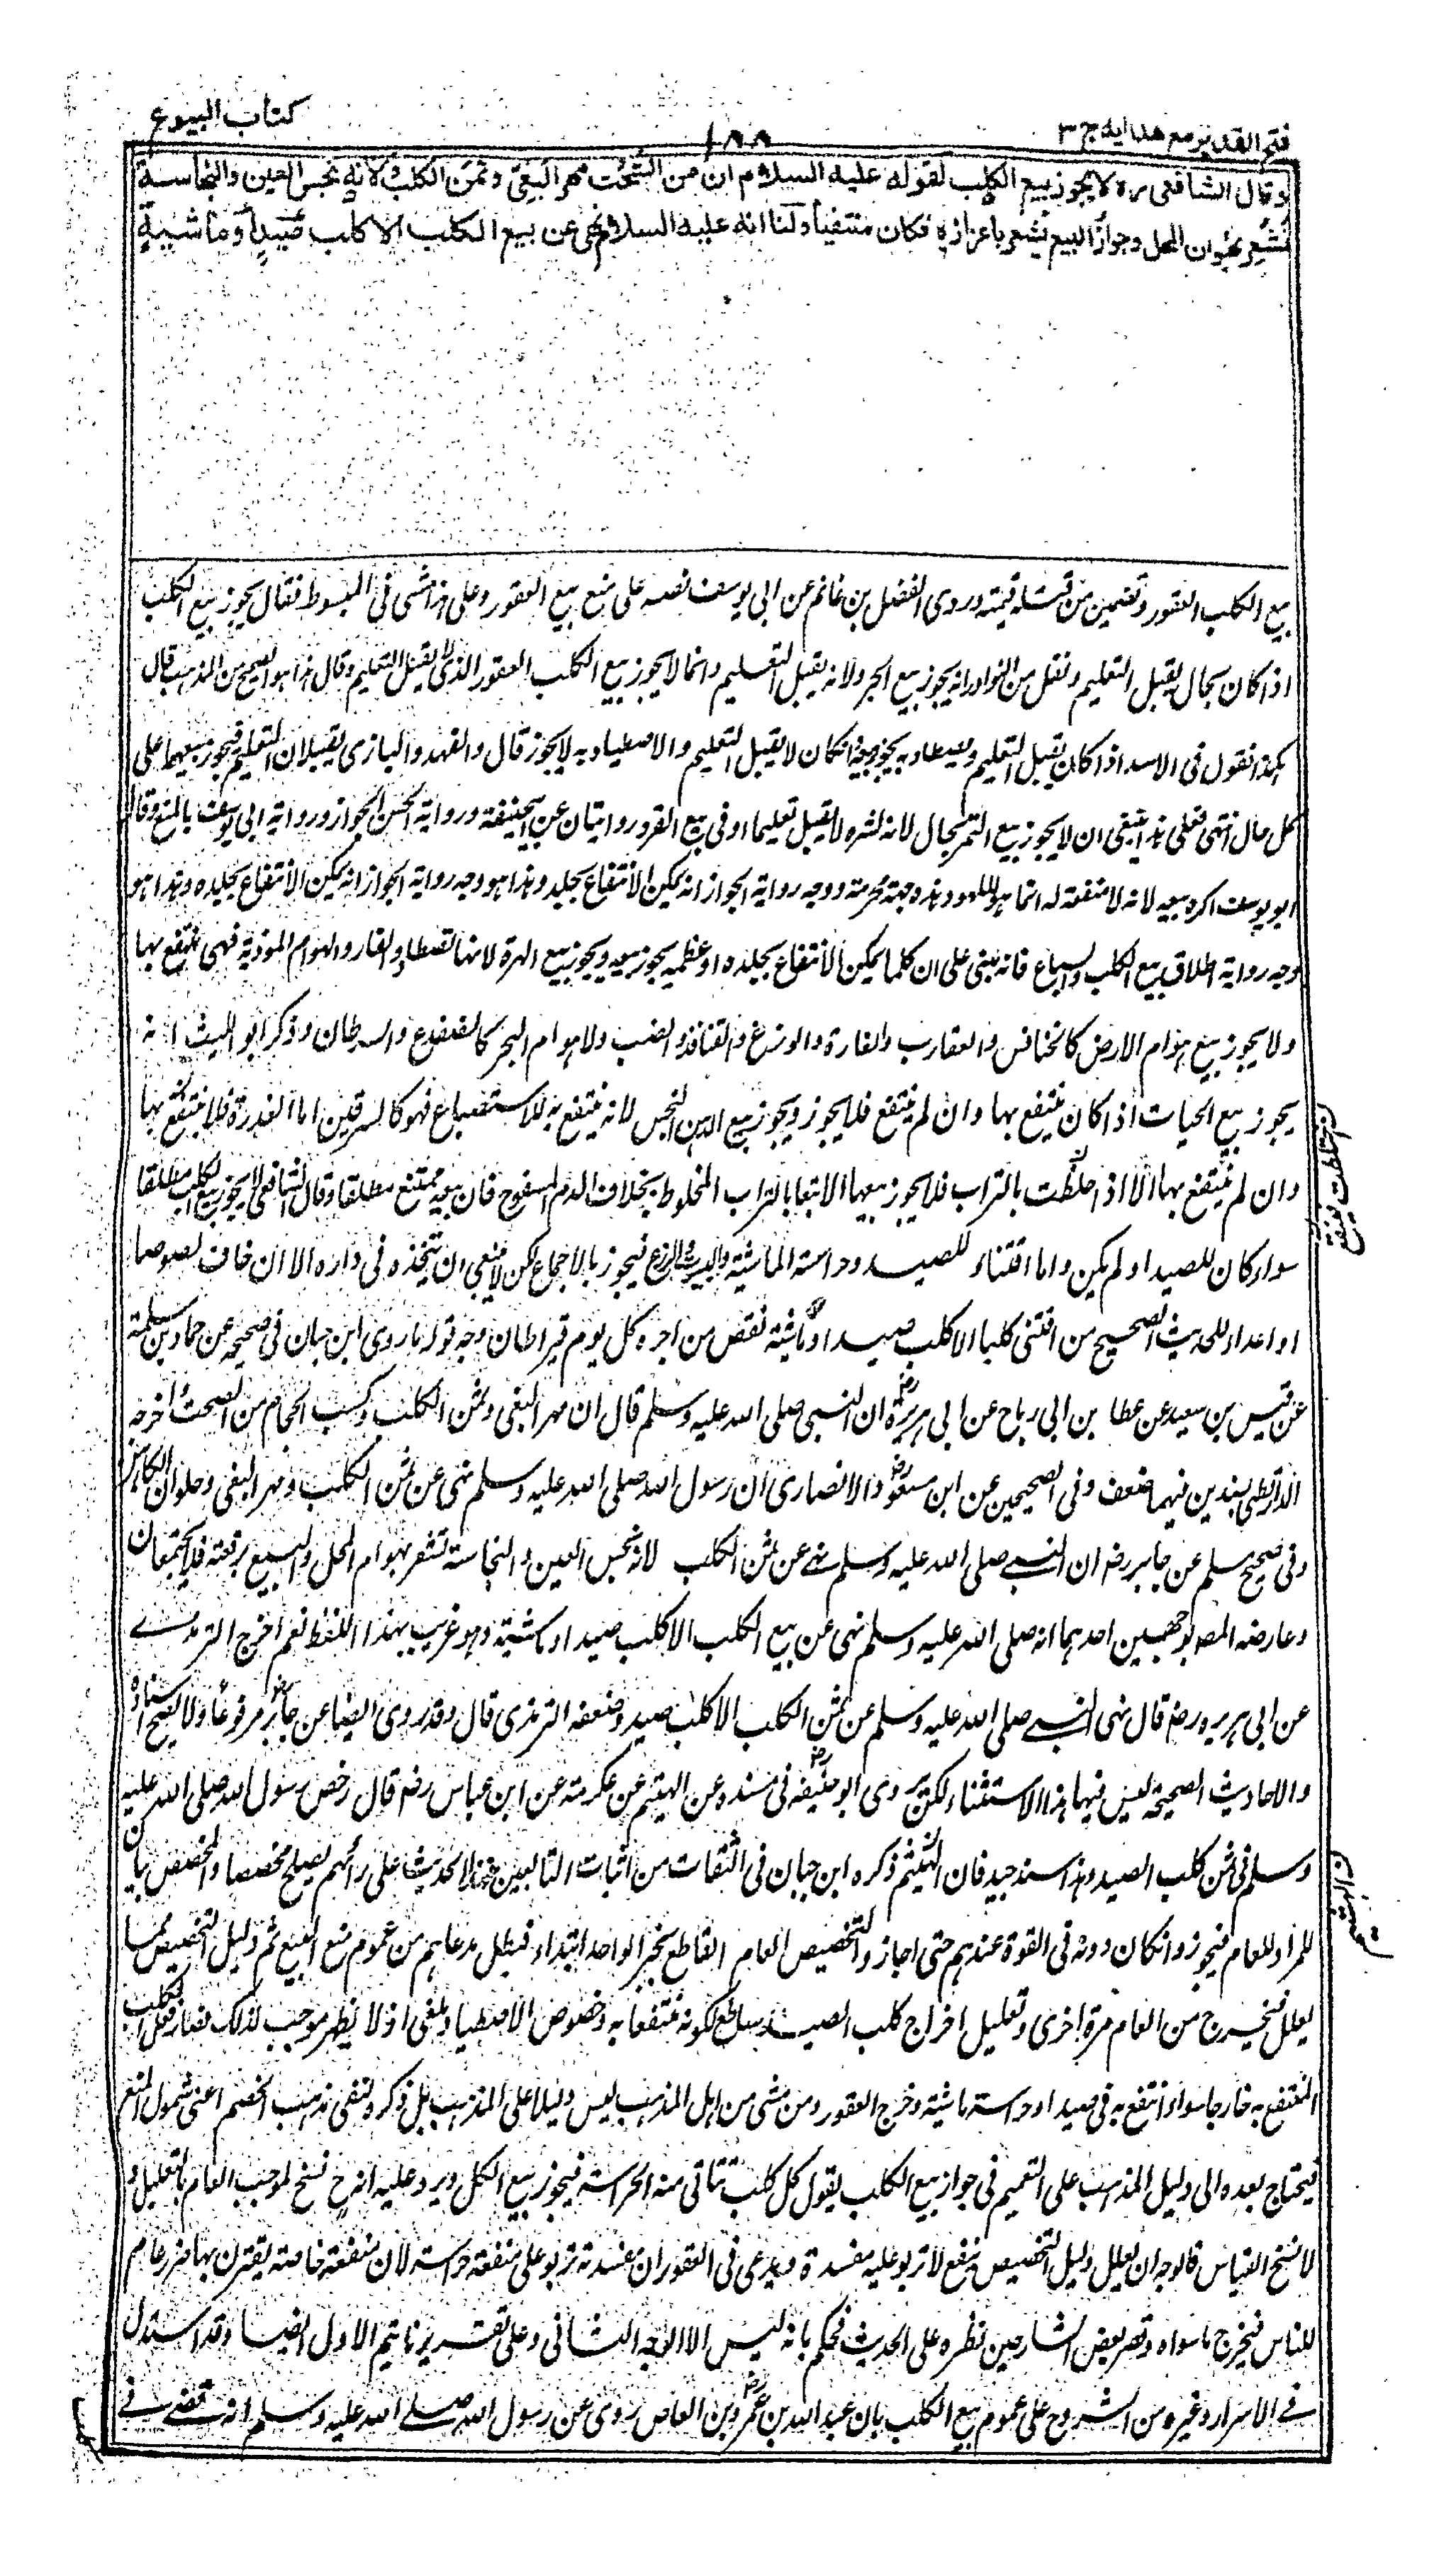 فتح القدير مع هدايه ج ٣
١٨٨
كتاب البيوع
وقال الشافعى ره لا يجوز بيع الكلب لقوله عليه السلام ان من السُّحت مهر البغى وثمن الكلب ولانه نجس العين والنجاسة
تشعر بهوان المحل وجواز البيع يشعر باعزازه فكان منتفيا ولنا انه عليه السلام نهى عن بيع الكلب الا كلب صيد او ماشية
بيع الكلب العقور وتضمين من قتله قيمته وروى الفضل بن غانم عن ابى يوسف نصه على منع بيع العقور وعلى هذا مشى فى المبسوط فقال يجوز بيع الكلب
اذا كان بحال يقبل التعليم ونقل من النوادر انه يجوز بيع الجرو لانه يقبل التعليم وانما لا يجوز بيع الكلب العقور الذى لا يقبل التعليم وقال هذا هو الصحيح من المذهب قال
هكذا نقول فى الاسد اذا كان يقبل التعليم ويصطاد به يجوز بيعه وان كان لا يقبل التعليم والاصطياد به لا يجوز قال والفهد والبازى يقبلان التعليم فيجوز بيعهما على
كل حال انتهى فعلى هذا ينبغى ان لا يجوز بيع النمر بحال لانه لشره لا يقبل تعليما وفى بيع القرد روايتان عن ابيحنيفة ورواية الحسن الجواز ورواية ابى يوسف بالمنع وقال
ابو يوسف اكره بيعه لانه لا منفعة له انما هو للهو وهذه جهة محرمة ووجه رواية الجواز انه يمكن الانتفاع بجلده وهذا هو وجه رواية الجواز انه يمكن الانتفاع بجلده وهذا هو
وجه رواية اطلاق بيع الكلب والسباع فانه مبنى على ان كلما يمكن الانتفاع بجلده او عظمه يجوز بيعه ويجوز بيع الهرة لانها تصطاد الفار والهوام الموذية فهى منتفع بها
ولا يجوز بيع هوام الارض كالخنافس والعقارب والفارة والوزغ والقنافذ والضب ولا هوام البحر كالضفدع والسرطان وذكر ابو الليث انه
يجوز بيع الحيات اذا كان ينتفع بها وان لم ينتفع فلا يجوز ويجوز بيع الدهن النجس لانه ينتفع به للاستصباح فهو كالسرقين اما العذرة فلا ينتفع بها
وان لم ينتفع بها الا اذا خلطت بالتراب فلا يجوز بيعها الا تبعا بالتراب المخلوط بخلاف الدم المسفوح فان بيعه ممتنع مطلقا وقال الشافعى لا يجوز بيع الكلب مطلقا
سواء كان للصيد او لم يكن واما اقتناءه للصيد وحراسة الماشية والبيوت والزرع فيجوز بالاجماع لكن لا ينبغى ان يتخذه فى داره الا ان خاف لصوصا
او اعداء للحديث الصحيح من اقتنى كلبا الا كلب صيد او ماشية نقص من اجره كل يوم قيراطان وجه قوله ما روى ابن حبان فى صحيحه عن حماد بن سلمة
عن قيس بن سعيد عن عطا بن ابى رباح عن ابى هريرة ان النبى صلى الله عليه وسلم قال ان مهر البغى وثمن الكلب وكسب الحجام من السحت اخرجه
الدارقطنى بسندين فيهما ضعف وفى الصحيحين عن ابن مسعود الانصارى ان رسول الله صلى الله عليه وسلم نهى عن ثمن الكلب ومهر البغى وحلوان الكاهن
وفى صحيح مسلم عن جابر رضه ان النبى صلى الله عليه وسلم نهى عن ثمن الكلب لانه نجس العين والنجاسة تشعر بهوان المحل والبيع برفعته فلا يجتمعان
وعارضه المصـ بوجهين احدهما انه صلى الله عليه وسلم نهى عن بيع الكلب الا كلب صيد او ماشية وهو غريب بهذا اللفظ نعم اخرج الترمذى
عن ابى هريره رضه قال نهى النبى صلى الله عليه وسلم عن ثمن الكلب الا كلب صيد وضعفه الترمذى قال وقد روى ايضا عن جابر مرفوعا ولا يصح اسناده
والاحاديث الصحيحة ليس فيها هذا الاستثناء لكن روى ابو حنيفه فى مسنده عن الهيثم عن عكرمة عن ابن عباس رضه قال رخص رسول الله صلى الله عليه
وسلم فى ثمن كلب الصيد وهذا سند جيد فان الهيثم ذكره ابن حبان فى الثقات من اثبات التابعين فهذا الحديث على رائهم يصلح مخصصا والمخصص بيان
للمراد بالعام فيجوز وان كان دونه فى القوة عندهم حتى اجازوا تخصيص العام القاطع بخبر الواحد ابتداء فبطل مدعاهم من عموم منع البيع ثم دليل التخصيص مما
يعلل فيخرج من العام مرة اخرى وتعليل اخراج كلب الصيد ساطع لكونه منتفعا به وخصوص الاصطياد ملغى اذ لا يظهر موجب لذلك فصار الكلب
المنتفع به خارجا سواء انتفع به فى صيد او حراسة ماشية وخرج العقور ومن مشى من اهل المذهب ليس دليلا على المذهب بل ذكره لنفى مذهب الخصم اعنى شمول المنع
فيحتاج بعده الى دليل المذهب على التعميم فى جواز بيع الكلب يقول كل كلب تتاتى منه الحراسة فيجوز بيع الكل ويرد عليه انه ح نسخ لموجب العام بالتعليل و
لا نسخ بالقياس فالوجه ان يعلل دليل التخصيص بنفع لا تربو عليه مفسدة ويدعى فى العقور ان مفسدته تربو على منفعة حراسته لان منفعته خاصة يقترن بها ضرر عام
للناس فيخرج ما سواه وقصر بعض الشارحين نظره على الحديث فحكم بانه ليس الا الوجه الثانى وعلى تقريرنا يتم الاول ايضا وقد استدل
فى الاسرار وغيره من الشروح على عموم بيع الكلب بان عبد الله بن عمرو بن العاص روى عن رسول الله صلى الله عليه وسلم انه قضى فى